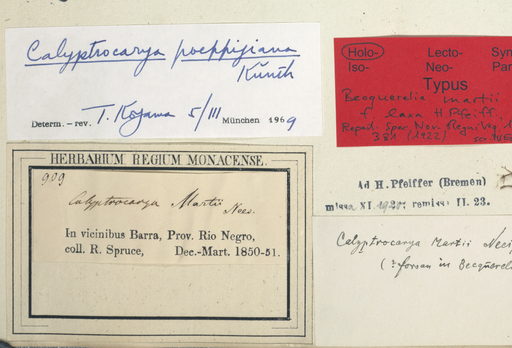 Calyptrocarya poeppigiana
Kunth
Determ. – rev. T. Koyama 5/III München 1969
Holo- Lecto- Syn
Iso- Neo- Par
Typus
Becquerelia martii
f. laxa H. Pfeiff.
Repert. Spec. Nov. Regni Veg. 1
381 (1922)
HERBARIUM REGIUM MONACENSE.
909
Calyptrocarya Martii Nees.
In vicinibus Barra, Prov. Rio Negro,
coll. R. Spruce, Dec.-Mart. 1850-51.
Ad H. Pfeiffer (Bremen)
missa XI. 1920; remissa II. 23.
Calyptrocarya Martii Nees
(? forsan in Becquerel